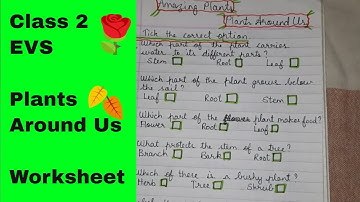 Class 2
EVS
Plants
Around Us
Worksheet
Amazing Plants
Plants Around Us
Tick the correct option
Which part of the plant carries
water to its different parts?
Stem Root Leaf
Which part of the plant grows below
the soil?
Leaf Root Stem
Which part of the plant makes food?
Flower Root Leaf
What protects the stem of a tree?
Branch Bark Root
Which of these is a bushy plant?
Herb Tree Shrub